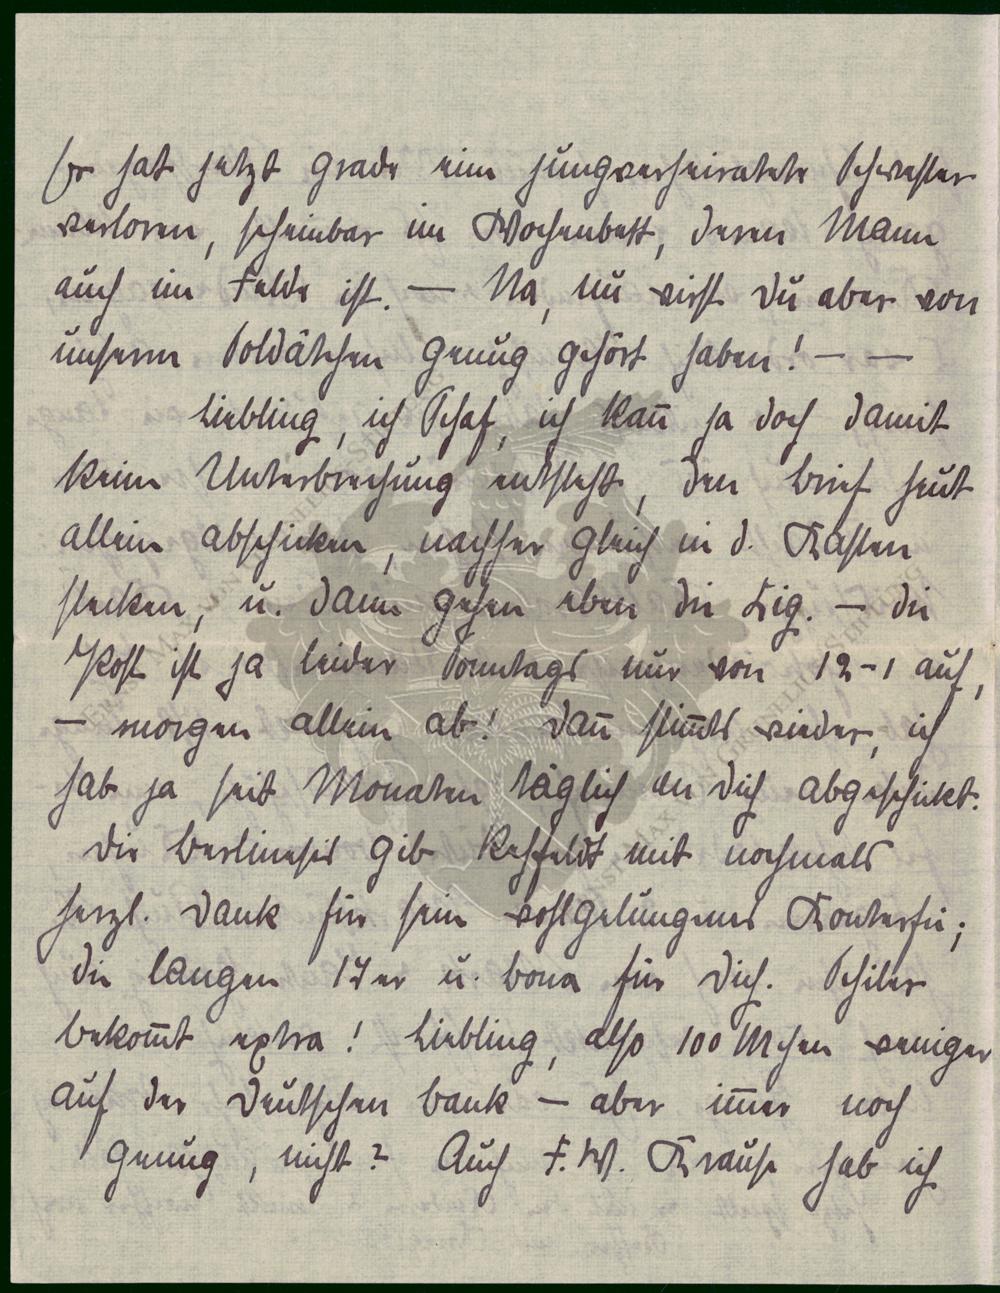 Er hat jetzt grade eine jungverheiratete Schwester
verloren, scheinbar im Wochenbett, deren Mann
auch im Felde ist. — Na, nu wirst Du aber von
unserm Soldätchen genug gehört haben! — —
Liebling, ich Schaf, ich kan̄ ja doch damit
keine Unterbrechung entsteht, den Brief heut
allein abschicken, nachher gleich in d. Kasten
stecken, u. dann gehen eben die Zig. — die
Post ist ja leider Sonntags nur von 12-1 auf,
— morgen allein ab! Dan̄ stim̄ts wieder, ich
hab ja seit Monaten täglich an Dich abgeschickt.
Die gib Rehfeldt mit nochmals
herzl. Dank für sein wohlgelungenes Konterfei;
die langen 17er u. Bona für Dich. Schiler
bekom̄t extra! Liebling, also 100 Mchen weniger
auf der Deutschen Bank — aber im̄er noch
genug, nicht? Auch F.W. Krause hab ich